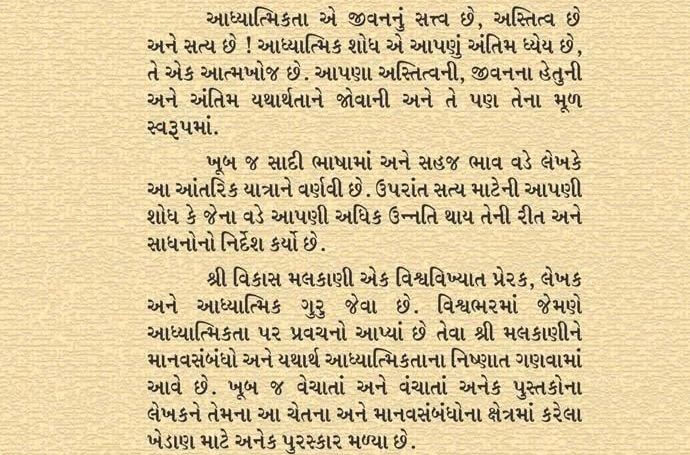 આધ્યાત્મિકતા એ જીવનનું સત્ત્વ છે, અસ્તિત્વ છે
અને સત્ય છે ! આધ્યાત્મિક શોધ એ આપણું અંતિમ ધ્યેય છે,
તે એક આત્મખોજ છે. આપણા અસ્તિત્વની, જીવનના હેતુની
અને અંતિમ યથાર્થતાને જોવાની અને તે પણ તેના મૂળ
સ્વરૂપમાં.
ખૂબ જ સાદી ભાષામાં અને સહજ ભાવ વડે લેખકે
આ આંતરિક યાત્રાને વર્ણવી છે. ઉપરાંત સત્ય માટેની આપણી
શોધ કે જેના વડે આપણી અધિક ઉન્નતિ થાય તેની રીત અને
સાધનોનો નિર્દેશ કર્યો છે.
શ્રી વિકાસ મલકાણી એક વિશ્વવિખ્યાત પ્રેરક, લેખક
અને આધ્યાત્મિક ગુરુ જેવા છે. વિશ્વભરમાં જેમણે
આધ્યાત્મિકતા પર પ્રવચનો આપ્યાં છે તેવા શ્રી મલકાણીને
માનવસંબંધો અને યથાર્થ આધ્યાત્મિકતાના નિષ્ણાત ગણવામાં
આવે છે. ખૂબ જ વેચાતાં અને વંચાતાં અનેક પુસ્તકોના
લેખકને તેમના આ ચેતના અને માનવસંબંધોના ક્ષેત્રમાં કરેલા
ખેડાણ માટે અનેક પુરસ્કાર મળ્યા છે.